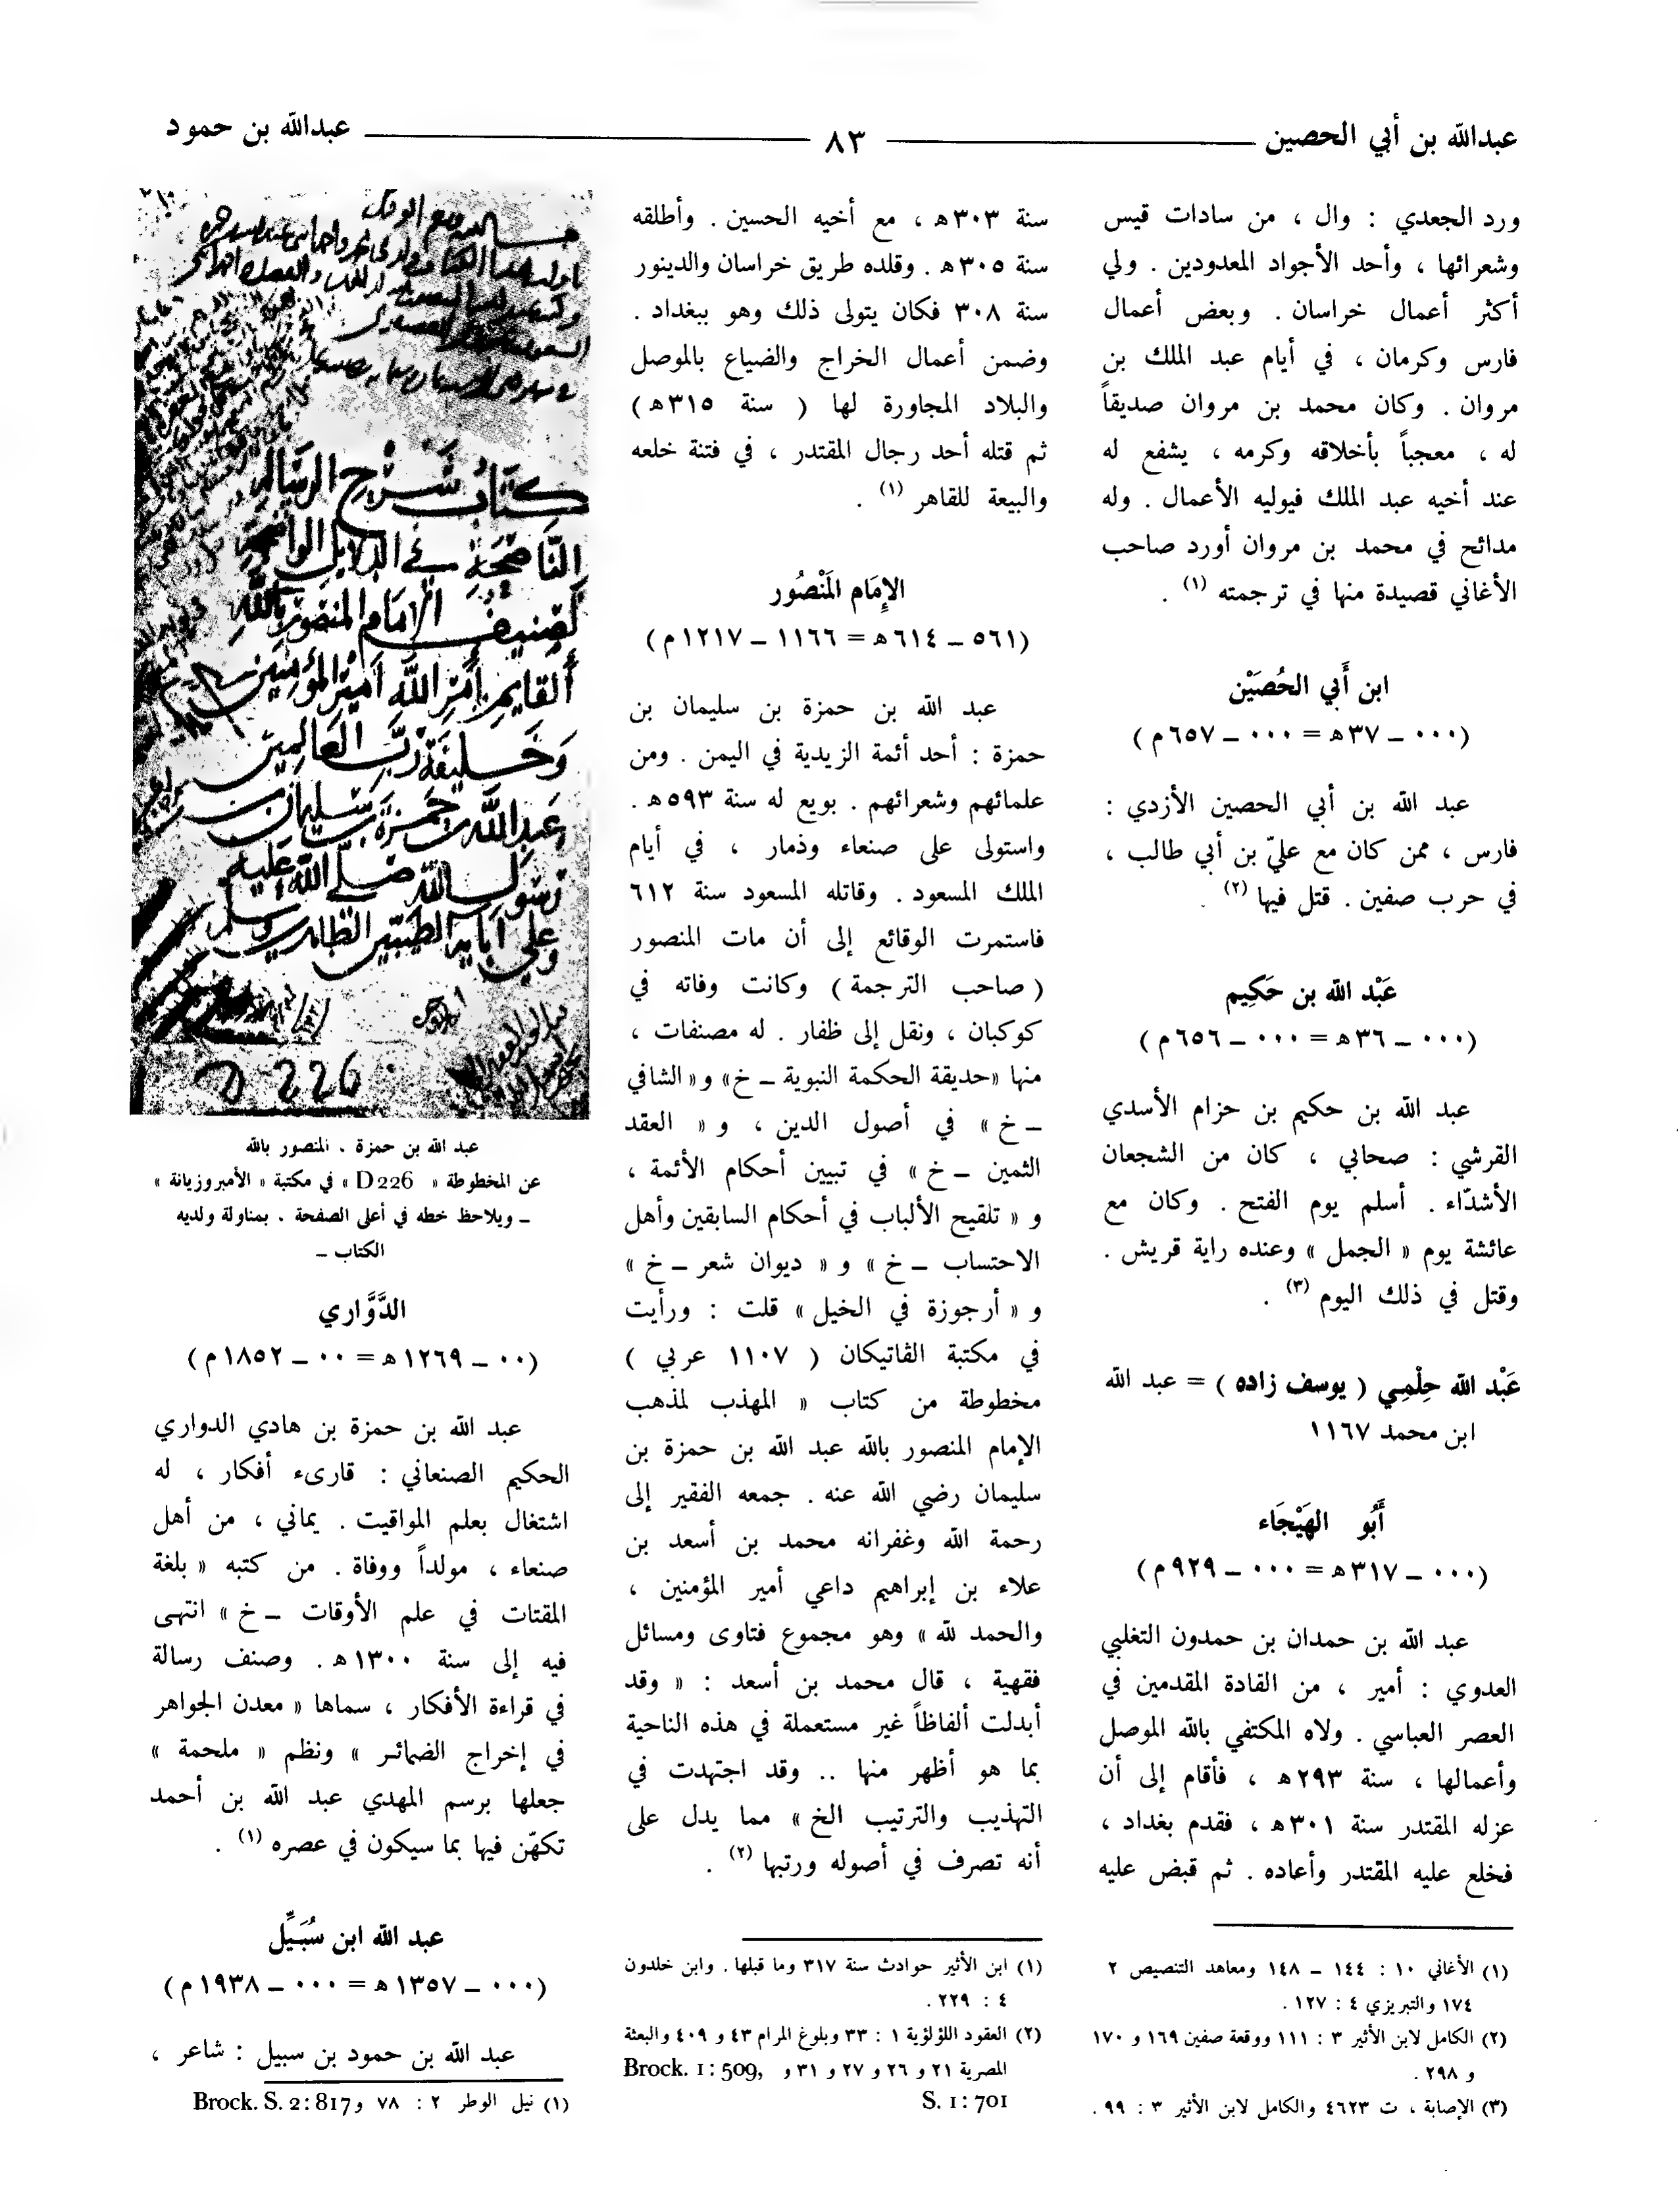 عبدالله بن أبي الحصين
٨٣
عبدالله بن حمود
ورد الجعدي : وال ، من سادات قيس
وشعرائها ، وأحد الأجواد المعدودين . ولي
أكثر أعمال خراسان . وبعض أعمال
فارس وكرمان ، في أيام عبد الملك بن
مروان . وكان محمد بن مروان صديقاً
له ، معجباً بأخلاقه وكرمه ، يشفع له
عند أخيه عبد الملك فيوليه الأعمال . وله
مدائح في محمد بن مروان أورد صاحب
الأغاني قصيدة منها في ترجمته (١) .
ابن أَبي الحُصَيْن
(٠٠٠ ــ ٣٧ هـ = ٠٠٠ ــ ٦٥٧ م)
عبد الله بن أبي الحصين الأزدي :
فارس ، ممن كان مع عليّ بن أبي طالب ،
في حرب صفين . قتل فيها (٢) .
عَبْد الله بن حَكِيم
(٠٠٠ ــ ٣٦ هـ = ٠٠٠ ــ ٦٥٦ م)
عبد الله بن حكيم بن حزام الأسدي
القرشي : صحابي ، كان من الشجعان
الأشدّاء . أسلم يوم الفتح . وكان مع
عائشة يوم « الجمل » وعنده راية قريش .
وقتل في ذلك اليوم (٣) .
عَبْد الله حِلْمِي ( يوسف زاده ) = عبد الله
ابن محمد ١١٦٧
أَبُو الهَيْجَاء
(٠٠٠ ــ ٣١٧ هـ = ٠٠٠ ــ ٩٢٩ م)
عبد الله بن حمدان بن حمدون التغلبي
العدوي : أمير ، من القادة المقدمين في
العصر العباسي . ولاه المكتفي بالله الموصل
وأعمالها ، سنة ٢٩٣ هـ ، فأقام إلى أن
عزله المقتدر سنة ٣٠١ هـ ، فقدم بغداد ،
فخلع عليه المقتدر وأعاده . ثم قبض عليه
(١) الأغاني ١٠ : ١٤٤ ــ ١٤٨ ومعاهد التنصيص ٢
١٧٤ والتبريزي ٤ : ١٢٧ .
(٢) الكامل لابن الأثير ٣ : ١١١ ووقعة صفين ١٦٩ و ١٧٠
و ٢٩٨ .
(٣) الإصابة ، ت ٤٦٢٣ والكامل لابن الأثير ٣ : ٩٩ .
سنة ٣٠٣ هـ ، مع أخيه الحسين . وأطلقه
سنة ٣٠٥ هـ . وقلده طريق خراسان والدينور
سنة ٣٠٨ فكان يتولى ذلك وهو ببغداد .
وضمن أعمال الخراج والضياع بالموصل
والبلاد المجاورة لها ( سنة ٣١٥ هـ )
ثم قتله أحد رجال المقتدر ، في فتنة خلعه
والبيعة للقاهر (١) .
الإِمَام المَنْصُور
(٥٦١ ــ ٦١٤ هـ = ١١٦٦ ــ ١٢١٧ م)
عبد الله بن حمزة بن سليمان بن
حمزة : أحد أئمة الزيدية في اليمن . ومن
علمائهم وشعرائهم . بويع له سنة ٥٩٣ هـ .
واستولى على صنعاء وذمار ، في أيام
الملك المسعود . وقاتله المسعود سنة ٦١٢
فاستمرت الوقائع إلى أن مات المنصور
( صاحب الترجمة ) وكانت وفاته في
كوكبان ، ونقل إلى ظفار . له مصنفات ،
منها «حديقة الحكمة النبوية ــ خ» و« الشافي
ــ خ » في أصول الدين ، و « العقد
الثمين ــ خ » في تبيين أحكام الأئمة ،
و « تلقيح الألباب في أحكام السابقين وأهل
الاحتساب ــ خ » و « ديوان شعر ــ خ »
و « أرجوزة في الخيل » قلت : ورأيت
في مكتبة الڤاتيكان ( ١١٠٧ عربي )
مخطوطة من كتاب « المهذب لمذهب
الإمام المنصور بالله عبد الله بن حمزة بن
سليمان رضي الله عنه . جمعه الفقير إلى
رحمة الله وغفرانه محمد بن أسعد بن
علاء بن إبراهيم داعي أمير المؤمنين ،
والحمد لله » وهو مجموع فتاوى ومسائل
فقهية ، قال محمد بن أسعد : « وقد
أبدلت ألفاظاً غير مستعملة في هذه الناحية
بما هو أظهر منها .. وقد اجتهدت في
التهذيب والترتيب الخ » مما يدل على
أنه تصرف في أصوله ورتبها (٢) .
(١) ابن الأثير حوادث سنة ٣١٧ وما قبلها . وابن خلدون
٤ : ٢٢٩ .
(٢) العقود اللؤلؤية ١ : ٣٣ وبلوغ المرام ٤٣ و ٤٠٩ والبعثة
المصرية ٢١ و ٢٦ و ٢٧ و ٣١ و Brock. 1 : 509,
S. 1 : 701
كتاب شرح الرسالة
الناصحة في الدلايل الواضحة
تصنيف الإمام المنصور بالله
القايم بأمر الله أمير المؤمنين
وخليفة رب العالمين
عبد الله بن حمزة بن سليمان بن
رسول الله صلى الله عليه
وعلى آبايه الطيبين الطاهرين وسلم
D 226
عبد الله بن حمزة . المنصور بالله
عن المخطوطة « D 226 » في مكتبة « الأمبروزيانة »
ــ ويلاحظ خطه في أعلى الصفحة . بمناولة ولديه
الكتاب ــ
الدَّوَّاري
(٠٠ ــ ١٢٦٩ هـ = ٠٠ ــ ١٨٥٢ م)
عبد الله بن حمزة بن هادي الدواري
الحكيم الصنعاني : قارىء أفكار ، له
اشتغال بعلم المواقيت . يماني ، من أهل
صنعاء ، مولداً ووفاة . من كتبه « بلغة
المقتات في علم الأوقات ــ خ » انتهى
فيه إلى سنة ١٣٠٠ هـ . وصنف رسالة
في قراءة الأفكار ، سماها « معدن الجواهر
في إخراج الضمائر » ونظم « ملحمة »
جعلها برسم المهدي عبد الله بن أحمد
تكهّن فيها بما سيكون في عصره (١) .
عبد الله ابن سُبَيِّل
(٠٠٠ ــ ١٣٥٧ هـ = ٠٠٠ ــ ١٩٣٨ م)
عبد الله بن حمود بن سبيل : شاعر ،
(١) نيل الوطر ٢ : ٧٨ و Brock. S. 2 : 817